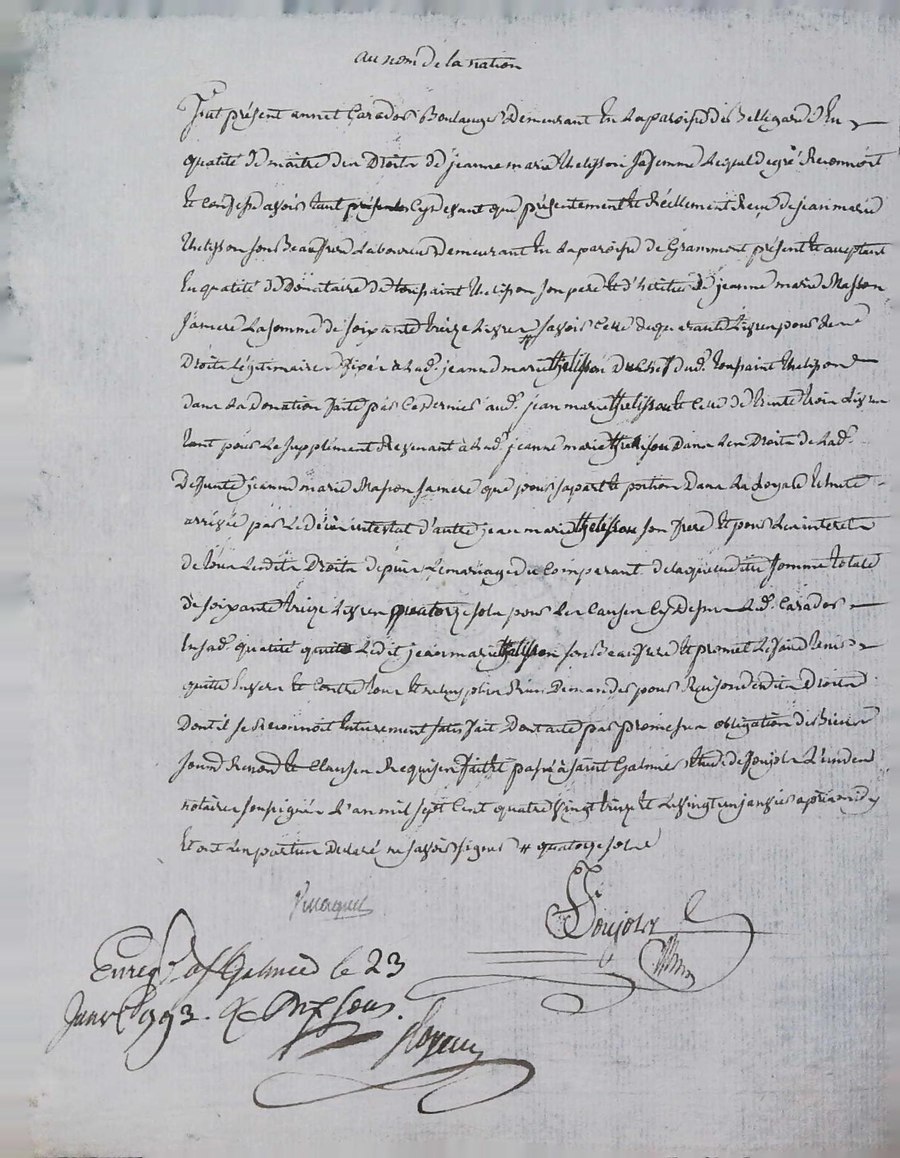 au nom de la nation
Fut présent annet Carados Boulanger demeurant En La paroisse de Bellegarde En
qualité de maitre des Droits de jeanne marie thelisson sa femme Lequel de gré Reconnoit
Et confesse avoir tant Cy devant que présentement Et Réellement Reçu de jean marie
thelisson son Beaufrere Laboureur demeurant En La paroisse de Grammont présent Et acceptant
En qualité de Donataire de toussaint thelisson son pere Et d'héritier de jeanne marie Masson
sa mere La somme de soixante treize Livres # savoir Celle de quarante Livres pour
Droits Légitimaires fixés a Lad. jeanne marie thelisson du Chef dud. toussaint thelisson
dans La donation faite par Ce dernier aud. jean marie thelisson Et Celle de trente trois Livres
tant pour Le supplément Revenant à Lad. jeanne marie thelisson dans Les Droits de Lad.
Défunte jeanne marie Masson sa mere que pour sa part Et portion Dans La
arrivée par Le décès intestat d'autre jean marie thelisson son frere Et pour Les interets
de tous Lesdits Droits depuis Le mariage du Comparant. de laquelle ditte somme totale
de soixante treize Livres quatorze sols pour Les Causes Cy dessus Led. Carados
En sad. qualité quitte Ledit jean marie thelisson son Beaufrere Et promet Le faire tenir
quitte Envers Et Contre tous Et ne plus Rien Demander pour Raison desdits Droits
Dont il se Reconnoit Entierement satisfait Dont acte par promesses obligation de Biens
soumis Renond. Et Clauses Requises fait Et passé à saint Galmier Etude de Soujols L'un des
notaires soussignés L'an mil sept Cent quatre vingt treize Et Le vingt un janvier après midy
Et ont Les parties Déclaré ne savoir signer # quatorze sols
Soujols
Enreg. a St Galmier le 23
Janv. 1793. Sous.